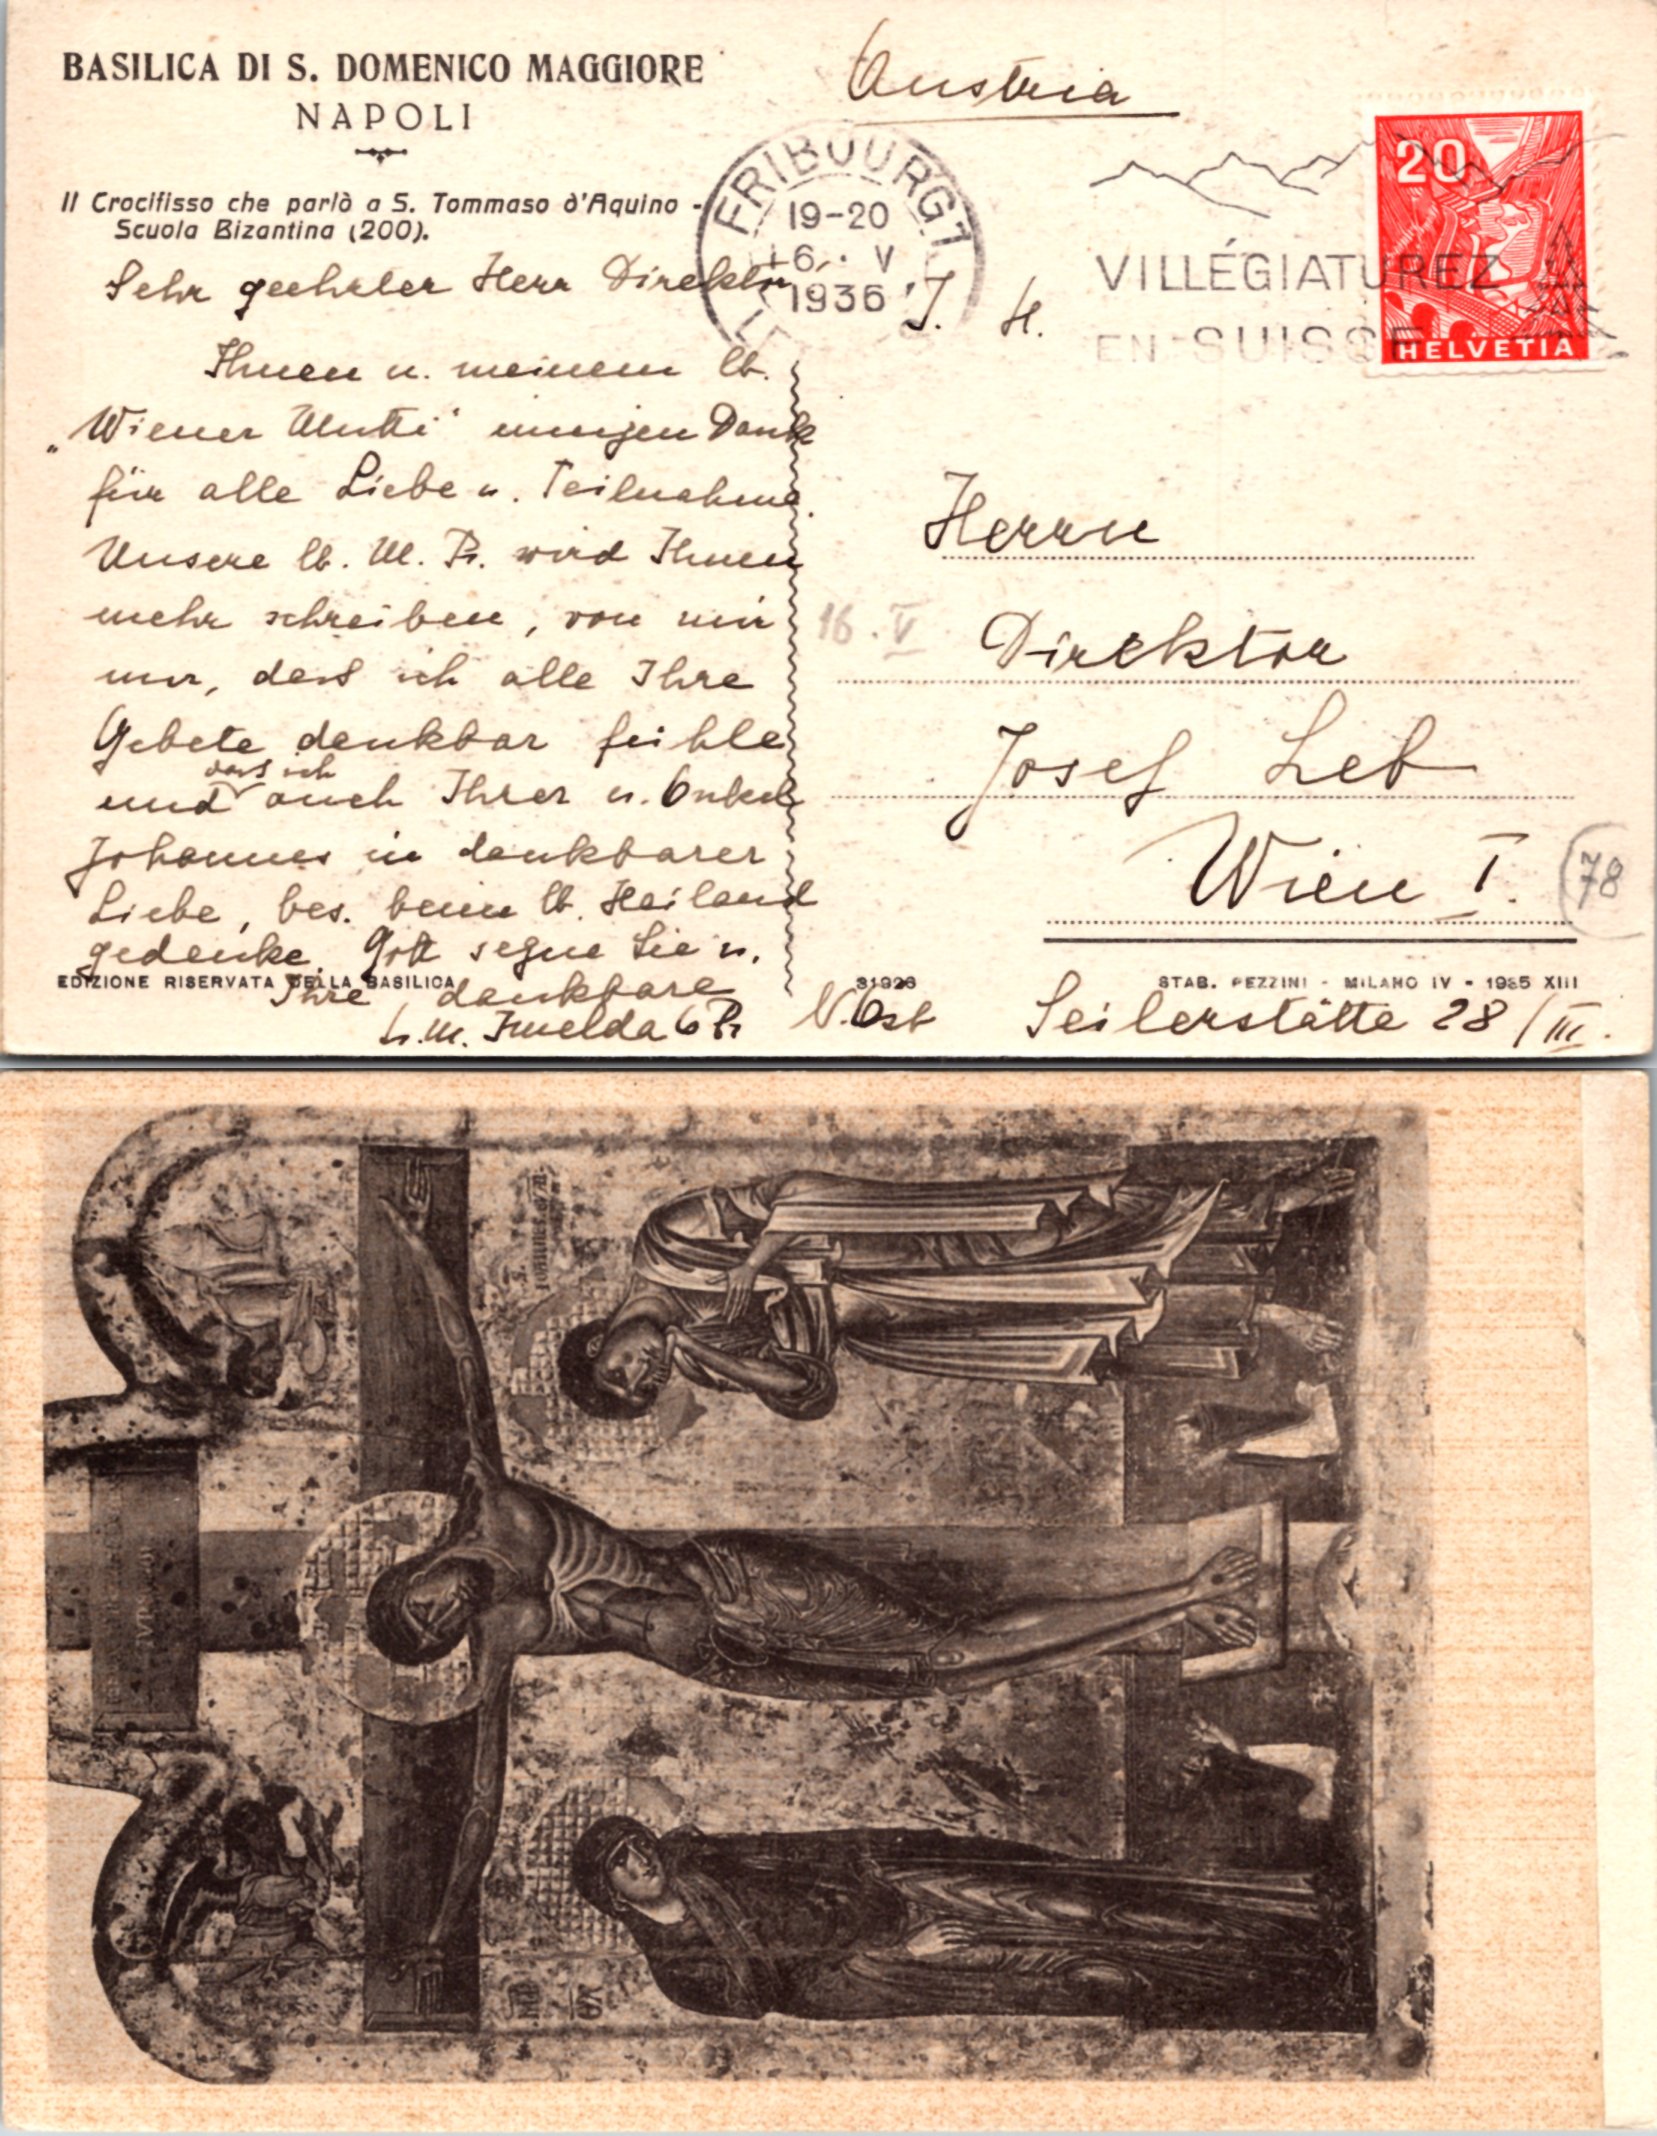 BASILICA DI S. DOMENICO MAGGIORE
NAPOLI
Il Crocifisso che parlò a S. Tommaso d'Aquino -
Scuola Bizantina (200).
Austria
FRIBOURG 1
19-20
16. V
1936
VILLÉGIATUREZ
EN SUISSE
20
HELVETIA
J. H.
Sehr geehrter Herr Direktor,
Ihnen u. meinem lb.
„Wiener Mutti" innigen Dank
für alle Liebe u. Teilnahme.
Unsere lb. M. Pr. wird Ihnen
mehr schreiben, von mir
nur, dass ich alle Ihre
Gebete dankbar fühle
und dass ich auch Ihrer u. Onkel
Johannes in dankbarer
Liebe, bes. beim lb. Heiland
gedenke. Gott segne Sie u.
Ihre dankbare
Sr. M. Imelda O Pr
Herrn
16. V
Direktor
Josef Leb
Wien I.
78
N. Öst
Seilerstätte 28/III.
EDIZIONE RISERVATA DELLA BASILICA
31926
STAB. PEZZINI - MILANO IV - 1935 XIII